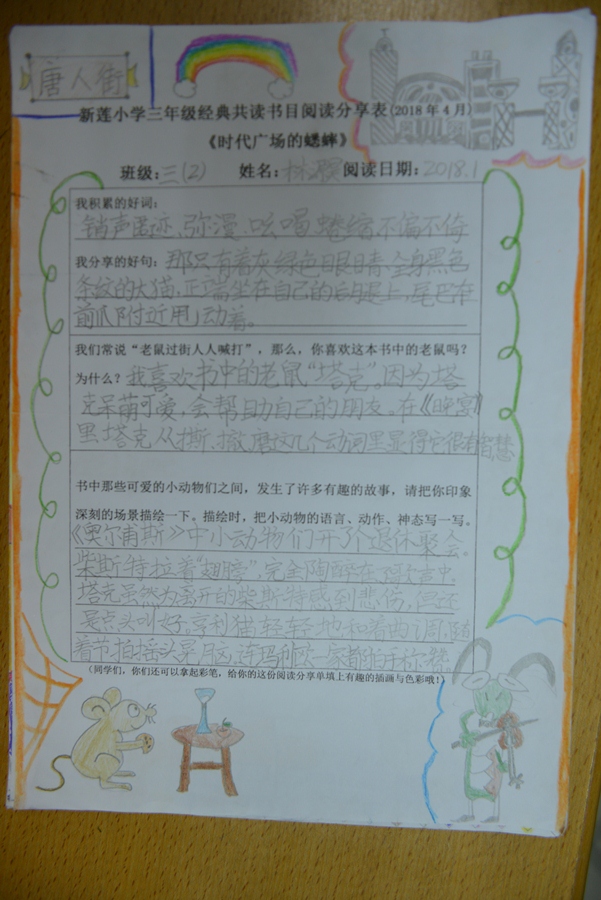 唐人街
新莲小学三年级经典共读书目阅读分享表(2018年4月)
《时代广场的蟋蟀》
班级:三(2) 姓名:林 阅读日期:2018.1
我积累的好词:
销声匿迹、弥漫、吆喝、蜷缩、不偏不倚
我分享的好句:那只有着灰绿色眼睛、全身黑色
条纹的大猫,正端坐在自己的后腿上,尾巴在
前爪附近甩动着。
我们常说“老鼠过街人人喊打”,那么,你喜欢这本书中的老鼠吗?
为什么?我喜欢书中的老鼠“塔克”。因为塔
克呆萌可爱,会帮助自己的朋友。在《晚宴》
里塔克从撕、撤、磨这几个动词里显得它很有智慧
书中那些可爱的小动物们之间,发生了许多有趣的故事,请把你印象
深刻的场景描绘一下。描绘时,把小动物的语言、动作、神态写一写。
《奥尔甫斯》中小动物们开了退休聚会。
柴斯特拉着“翅膀”,完全陶醉在歌声中,
塔克虽然为离开的柴斯特感到悲伤,但还
是点头叫好,亨利猫轻轻地和着曲调,随
着节拍摇头晃,连玛利欧一家都拍手称
(同学们,你们还可以拿起彩笔,给你的这份阅读分享单填上有趣的插画与色彩哦!)